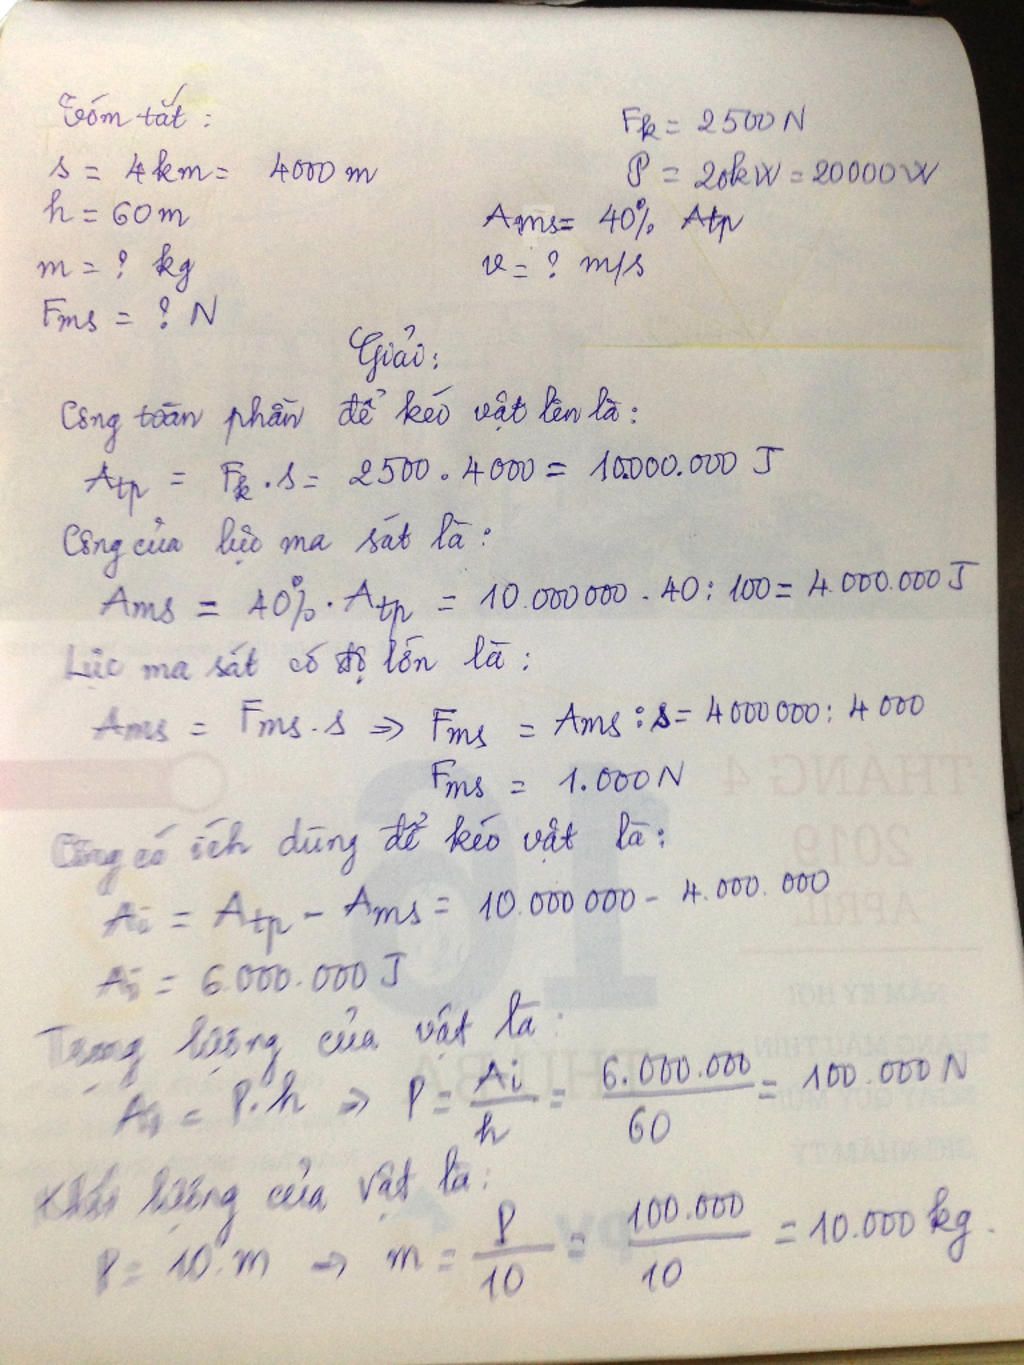 Tóm tắt:
s = 4km = 4000 m
h = 60m
m = ? kg
Fms = ? N
Fk = 2500 N
P = 20kW = 20000 W
Ams = 40% Atp
v = ? m/s
Giải:
Công toàn phần để kéo vật lên là:
Atp = Fk . s = 2500 . 4000 = 10.000.000 J
Công của lực ma sát là:
Ams = 40% . Atp = 10.000000 . 40 : 100 = 4.000.000 J
Lực ma sát có độ lớn là:
Ams = Fms . s => Fms = Ams : s = 4000000 : 4000
Fms = 1.000 N
Công có ích dùng để kéo vật là:
Ai = Atp - Ams = 10.000000 - 4.000.000
Ai = 6.000.000 J
Trọng lượng của vật là:
Ai = P.h => P = Ai/h = 6.000.000/60 = 100.000 N
Khối lượng của vật là:
P = 10.m => m = P/10 = 100.000/10 = 10.000 kg.
THANG 4
2019
APRIL
16